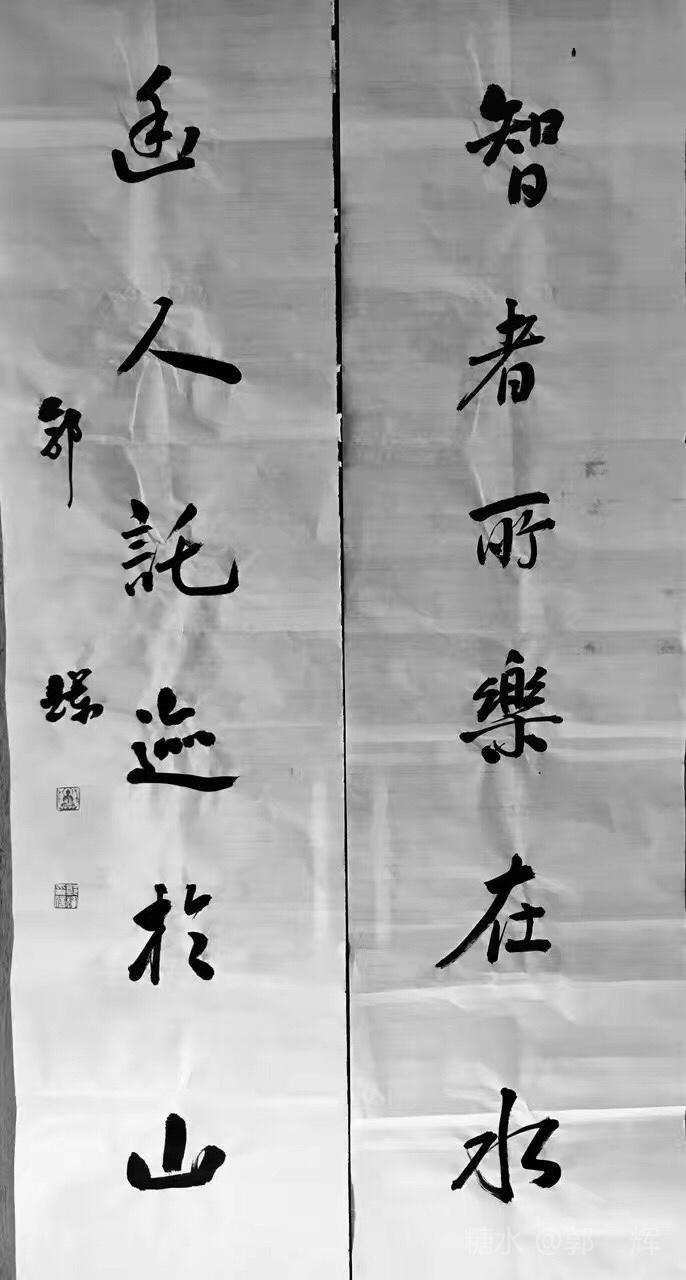 智者所樂在水
幽人託迹於山
郭
糖水 @郭 辉